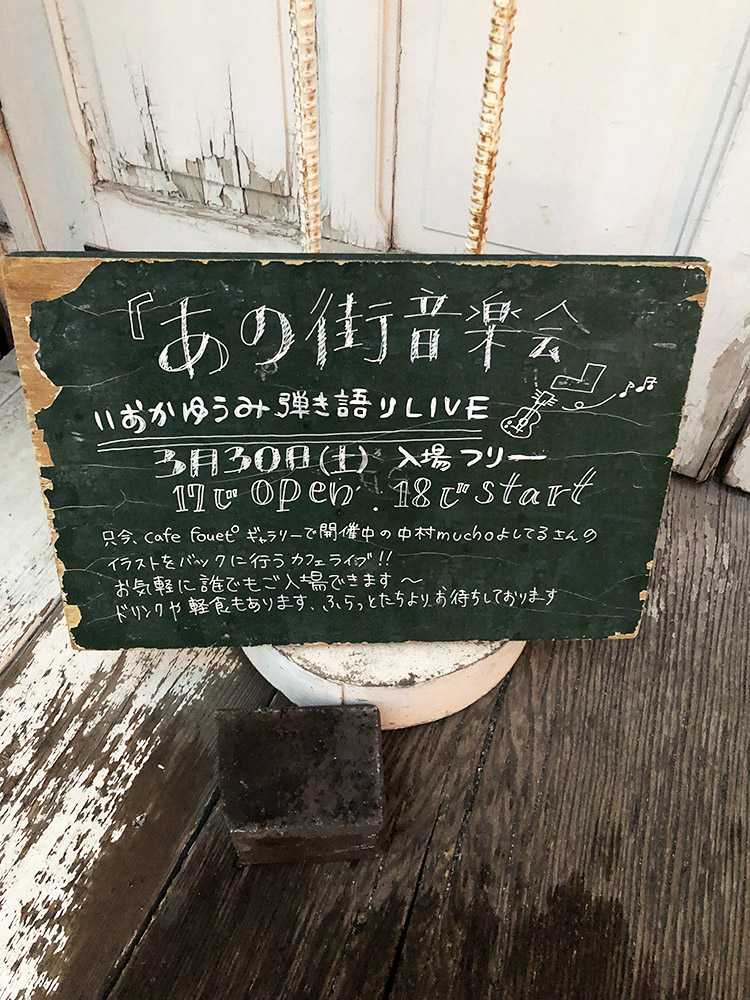 『あの街音楽会
いおかゆうみ 弾き語りLIVE
3月30日(土) 入場フリー
17じ open . 18じ start
只今、cafe fouet° ギャラリーで開催中の中村muchoよしてるさんの
イラストをバックに行うカフェライブ!!
お気軽に誰でもご入場できます〜
ドリンクや軽食もあります、ふらっとたちより、お待ちしております